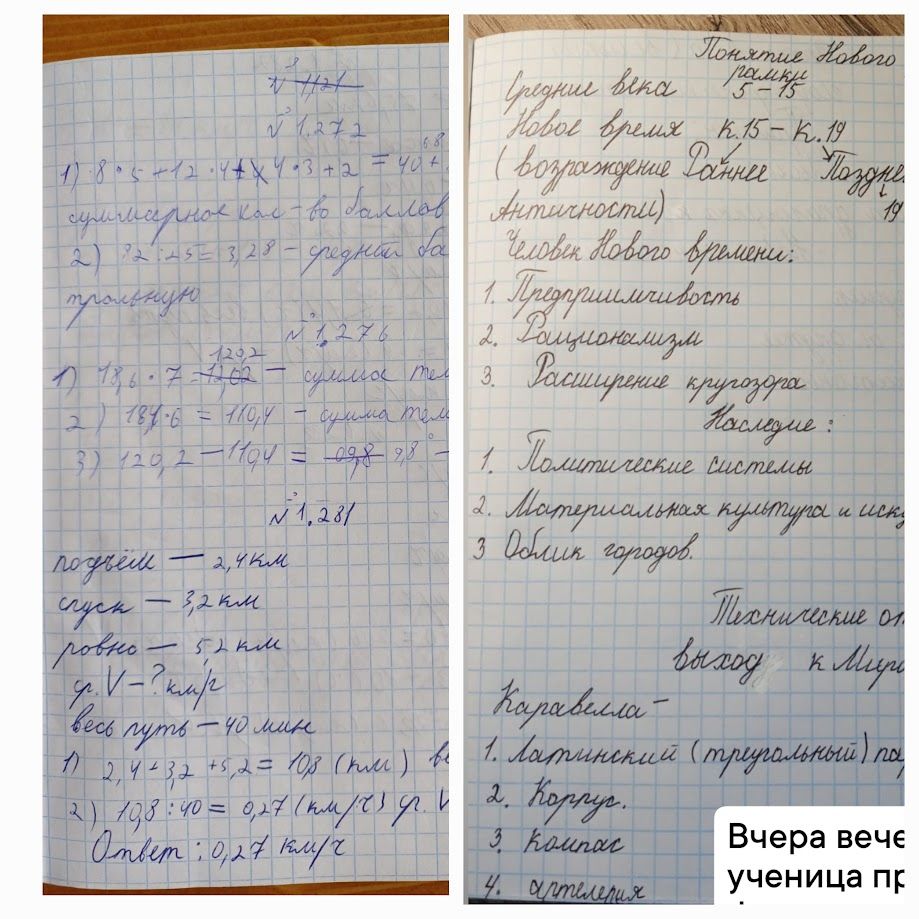 № 1121
№ 1.272
1) 8 · 5 + 12 · 4 + 4 · 3 + 2 = 40 +
суммарное кол-во баллов
2) 82 : 25 = 3,28 – средний ба
трольную
№ 1.276
120,2
1) 18,6 · 7 = 12,02 – сумма тем
2) 18,4 · 6 = 110,4 – сумма тем
3) 120,2 – 110,4 = 09,8 9,8° –
№ 1.281
подъём — 2,4 км
спуск — 3,2 км
ровно — 5,2 км
ср. V – ? км/г
весь путь – 40 мин
1) 2,4 + 3,2 + 5,2 = 10,8 (км) ве
2) 10,8 : 40 = 0,27 (км/ч) ср. V
Ответ : 0,27 км/ч
Понятие Нового
рамки
Средние века 5 – 15
Новое время к.15 – к.19
( возраждение Раннее Поздне
Античности) 19
Человек Нового времени:
1. Предприимчивость
2. Рационализм
3. Расширение кругозора
Наследие :
1. Политические системы
2. Материальная культура и иску
3 Облик городов.
Технические от
выход к Миро
Каравелла –
1. Латинский (треугольный) пар
2. Корпус.
3. Компас
4. артелерия
Вчера вече
ученица пр